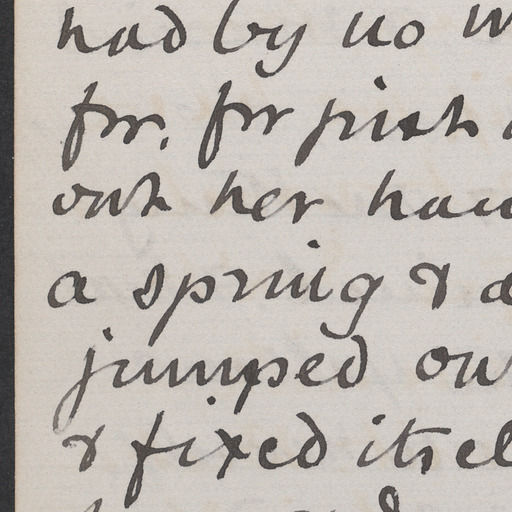 had by no
for, for just
out her han
a spring & a
jumped ou
& fixed itsel